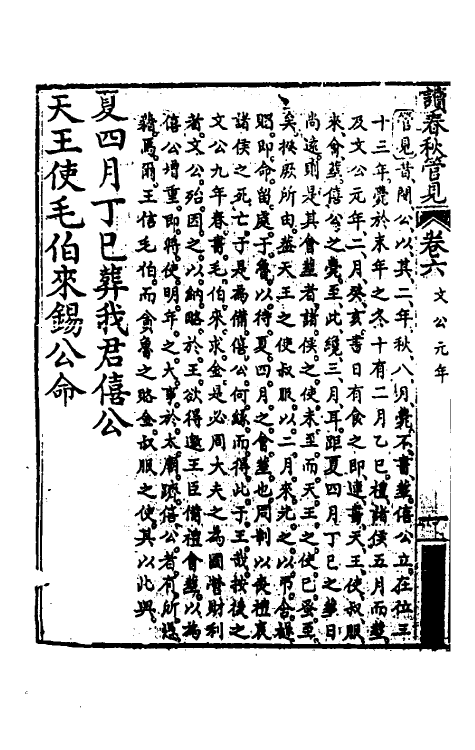 讀春秋管見 卷六 文公元年 一
管見昔閔公以其二年秋八月薨不書葬僖公立在位三
十三年薨於末年之冬十有二月乙巳禮諸侯五月而葬
及文公元年二月癸亥書日有食之即連書天王使叔服
來會葬僖公之薨至此纔三月耳距夏四月丁巳之葬日
尚遠則是其會葬者諸侯之使未至而天王之使已蚤至
矣揆厥所由葢天王之使叔服以二月來先之以弔含
賵即命留處于魯以待夏四月之會葬也周制以喪禮哀
諸侯之死亡于是為備僖公何緣而得此于王哉按後之
文公九年春書毛伯來求金是必周大夫之為國營財利
者文公殆因之以納賂於王欲得邀王臣備禮會葬以為
僖公增重即將使明年之大事於太廟躋僖公者有所
焉爾王信毛伯而貪魯之賂金叔服之使其以此與
夏四月丁巳葬我君僖公
天王使毛伯來錫公命